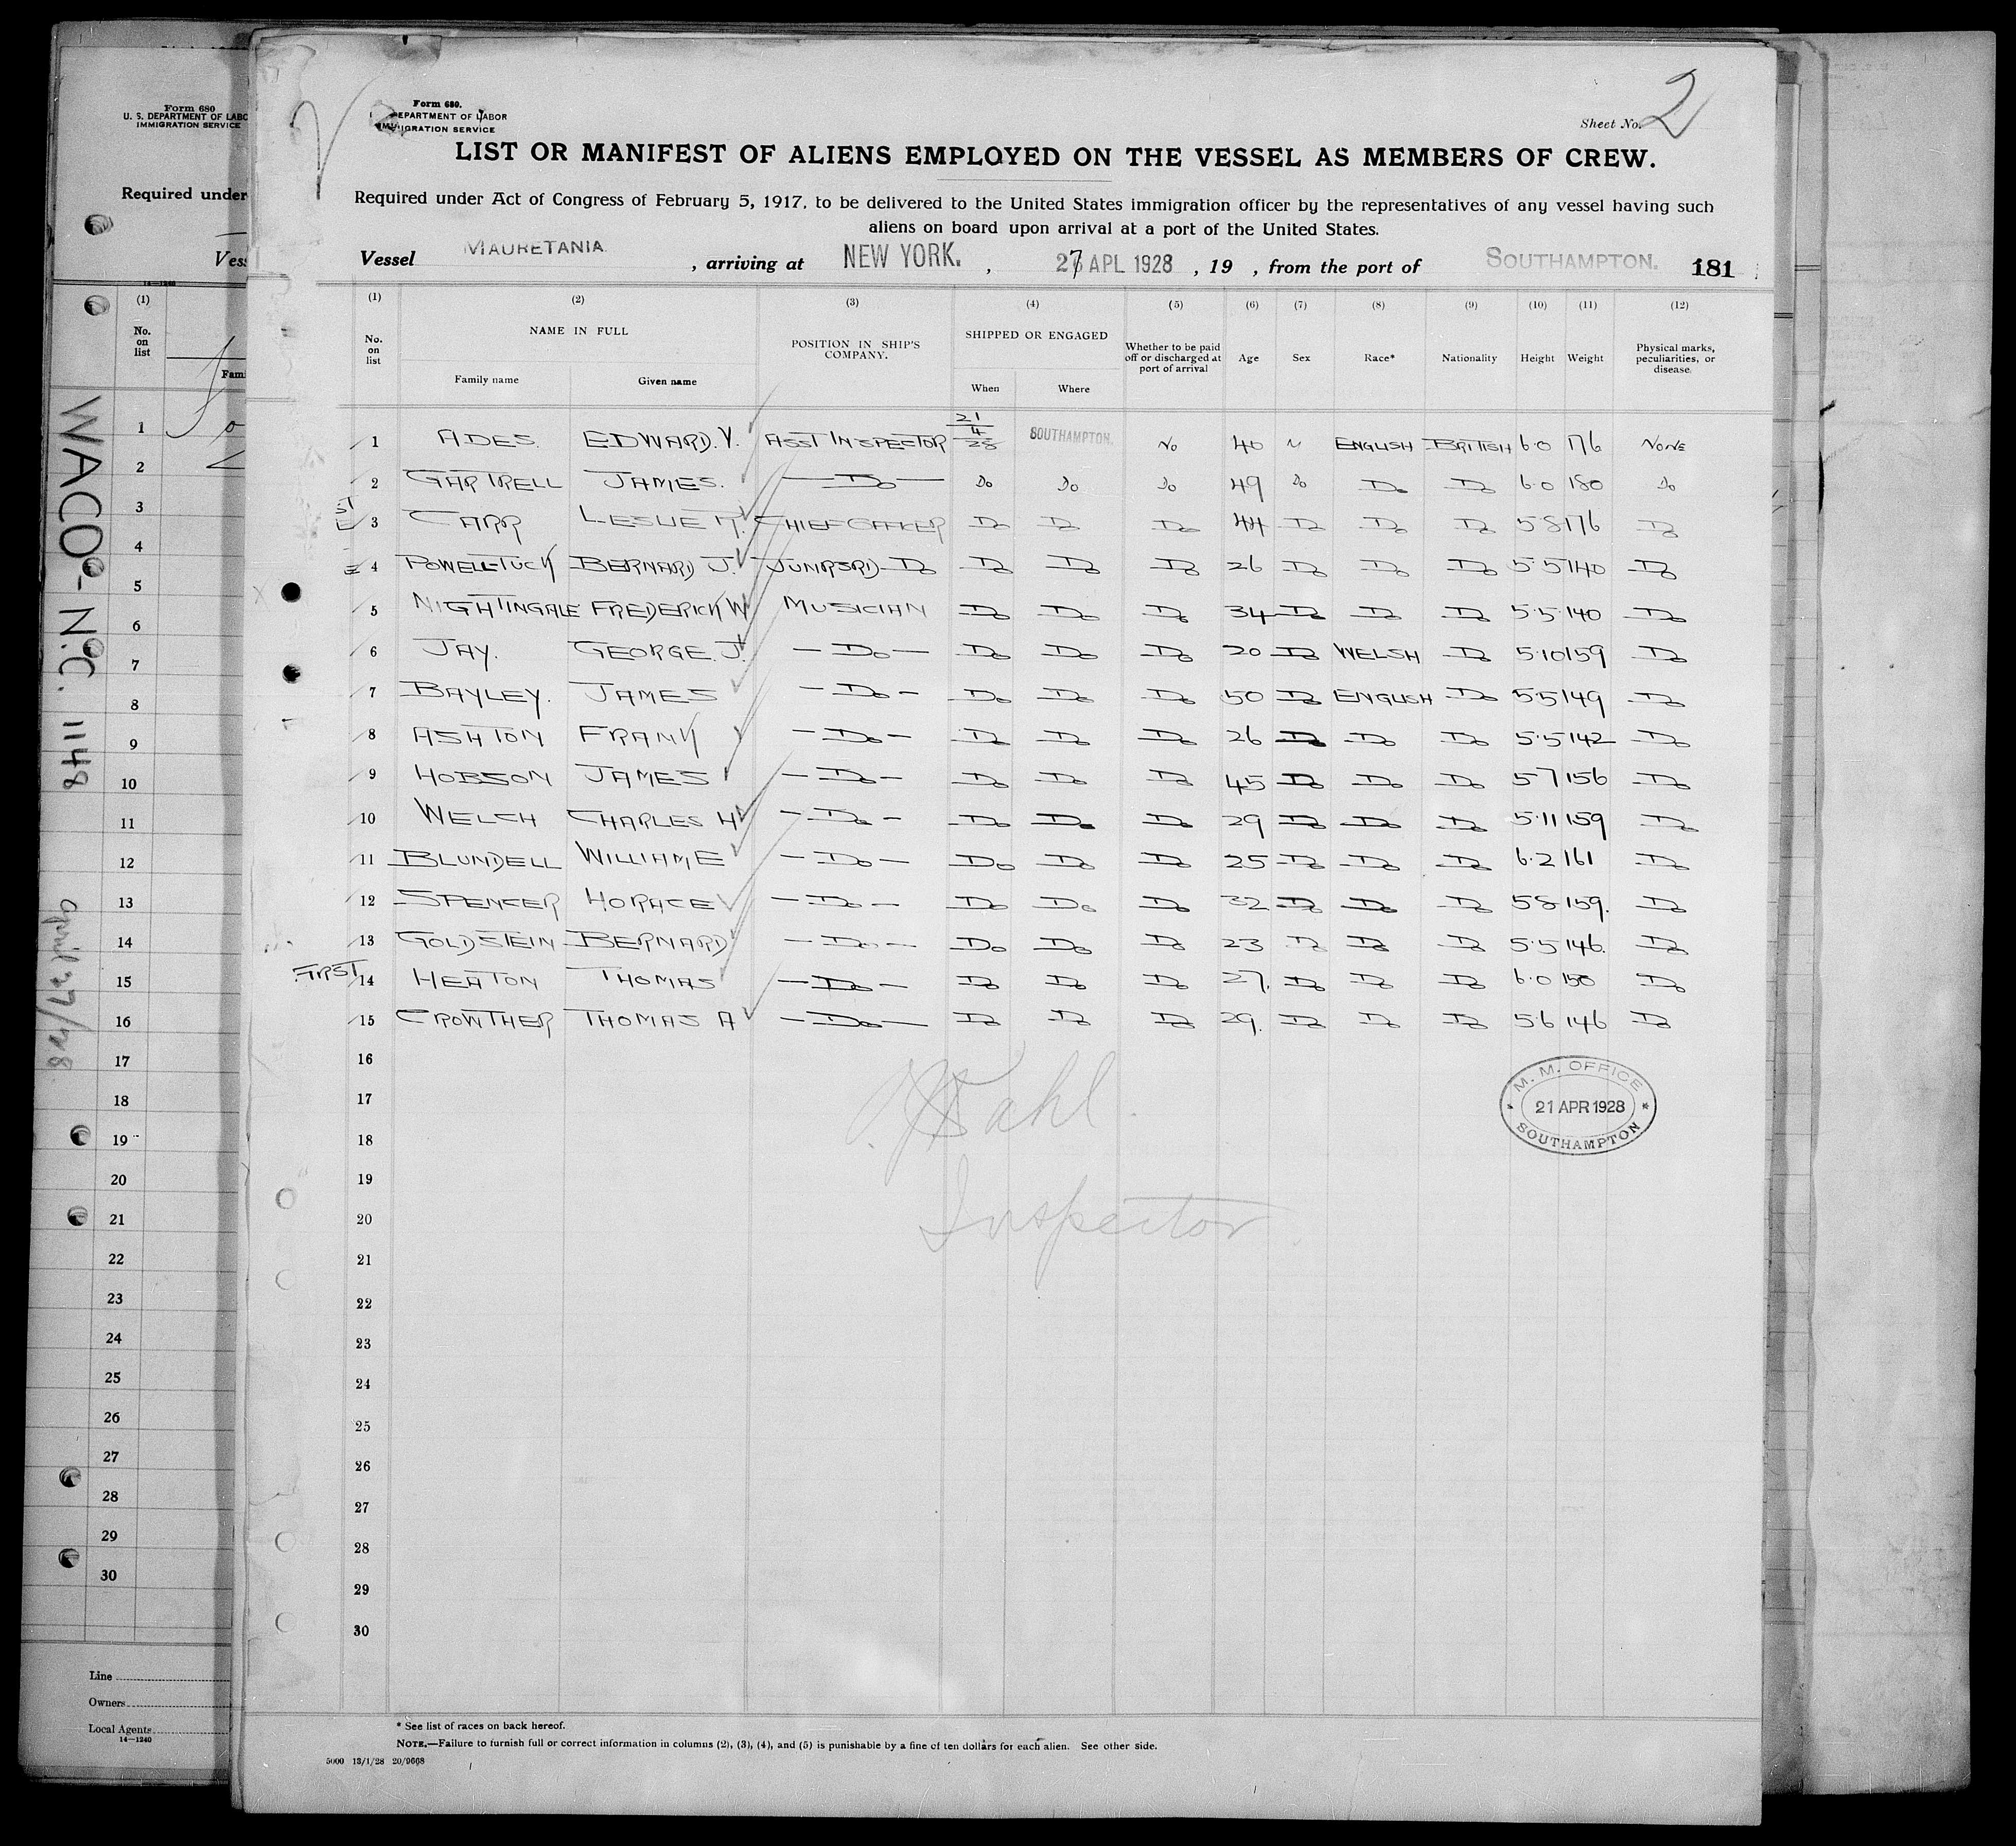 Form 680
U. S. DEPARTMENT OF LABO
IMMIGRATION SERVICE
Required under
Vess
14—1240
(1)
No. on list
Fami
1
2
3
4
5
6
7
8
9
10
11
12
13
14
15
16
17
18
19
20
21
22
23
24
25
26
27
28
29
30
Line
Owners
Local Agents
14—1240
WACO - N.C. 1148
april 27/28
Form 680.
DEPARTMENT OF LABOR
IMMIGRATION SERVICE
Sheet No. 2
LIST OR MANIFEST OF ALIENS EMPLOYED ON THE VESSEL AS MEMBERS OF CREW.
Required under Act of Congress of February 5, 1917, to be delivered to the United States immigration officer by the representatives of any vessel having such
aliens on board upon arrival at a port of the United States.
Vessel MAURETANIA , arriving at NEW YORK. , 27 APL 1928 , 19 , from the port of SOUTHAMPTON. 181
(1) (2) (3) (4) (5) (6) (7) (8) (9) (10) (11) (12)
No. on list NAME IN FULL POSITION IN SHIP'S COMPANY. SHIPPED OR ENGAGED Whether to be paid off or discharged at port of arrival Age Sex Race* Nationality Height Weight Physical marks, peculiarities, or disease.
Family name Given name When Where
1 ADES. EDWARD. V. ASST INSPECTOR 21/4/28 SOUTHAMPTON. No 40 M ENGLISH BRITISH 6.0 176 NONE
2 GARTRELL JAMES. — Do — Do Do Do 49 Do Do Do 6.0 180 Do
3 CARR LESLIE R. CHIEF Do Do Do 44 Do Do Do 5 8 176 Do
4 POWELL-TUCK BERNARD J. Do Do Do Do 26 Do Do Do 5.5 140 Do
5 NIGHTINGALE FREDERICK W MUSICIAN Do Do Do 34 Do Do Do 5.5 140 Do
6 JAY. GEORGE. J. — Do — Do Do Do 20 Do WELSH Do 5.10 159 Do
7 BAYLEY. JAMES — Do — Do Do Do 50 Do ENGLISH Do 5.5 149 Do
8 ASHTON FRANK — Do — Do Do Do 26 Do Do Do 5.5 142 Do
9 HOBSON JAMES — Do — Do Do Do 45 Do Do Do 5 7 156 Do
10 WELCH CHARLES H — Do — Do Do Do 29 Do Do Do 5.11 159 Do
11 BLUNDELL WILLIAM E — Do — Do Do Do 25 Do Do Do 6.2 161 Do
12 SPENCER HORACE — Do — Do Do Do 32 Do Do Do 5 8 159. Do
13 GOLDSTEIN BERNARD — Do — Do Do Do 23 Do Do Do 5.5 146. Do
FIRST 14 HEATON THOMAS — Do — Do Do Do 27. Do Do Do 6.0 150 Do
15 CROWTHER THOMAS A — Do — Do Do Do 29. Do Do Do 5.6 146 Do
16
17
18
19
20
21
22
23
24
25
26
27
28
29
30
Inspector
M. M. OFFICE
21 APR 1928
SOUTHAMPTON
* See list of races on back hereof.
NOTE.—Failure to furnish full or correct information in columns (2), (3), (4), and (5) is punishable by a fine of ten dollars for each alien. See other side.
5000 13/1/28 20/9668